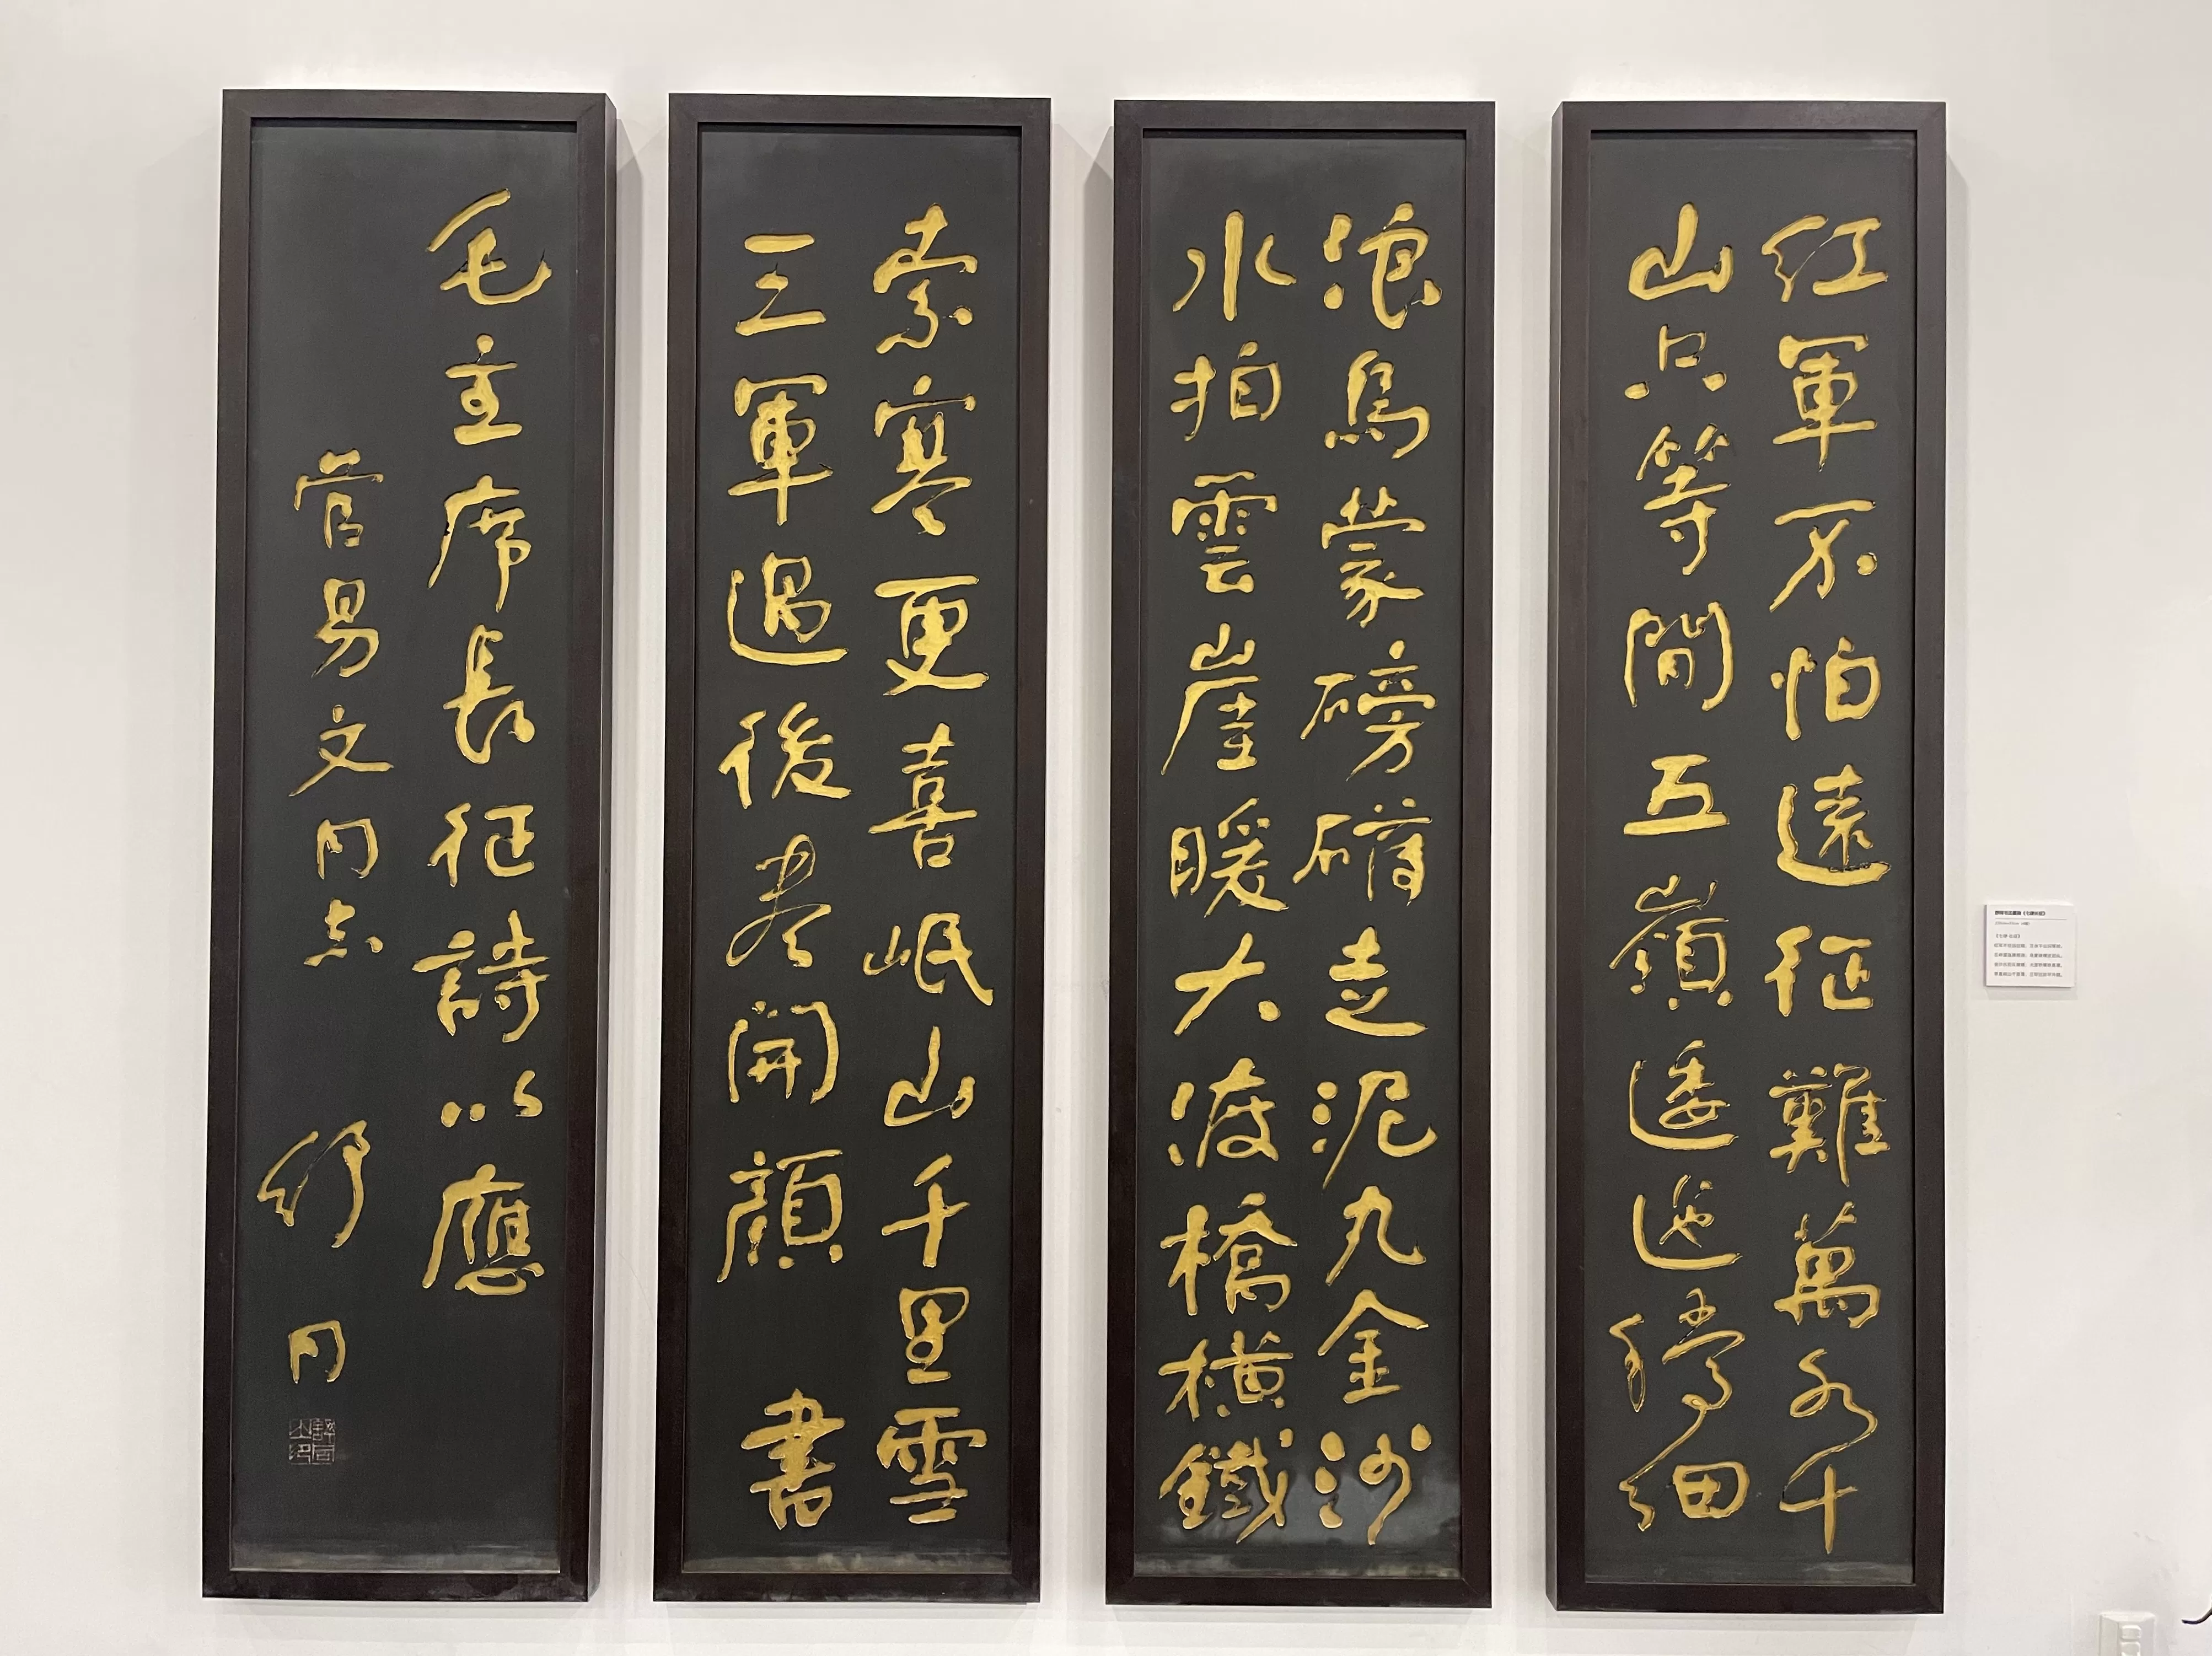 紅軍不怕遠征難萬水千
山只等閒五嶺逶迤騰細
浪烏蒙磅礴走泥丸金沙
水拍雲崖暖大渡橋橫鐵
索寒更喜岷山千里雪
三軍過後盡開顏 書
毛主席長征詩以應
管易文同志 舒同